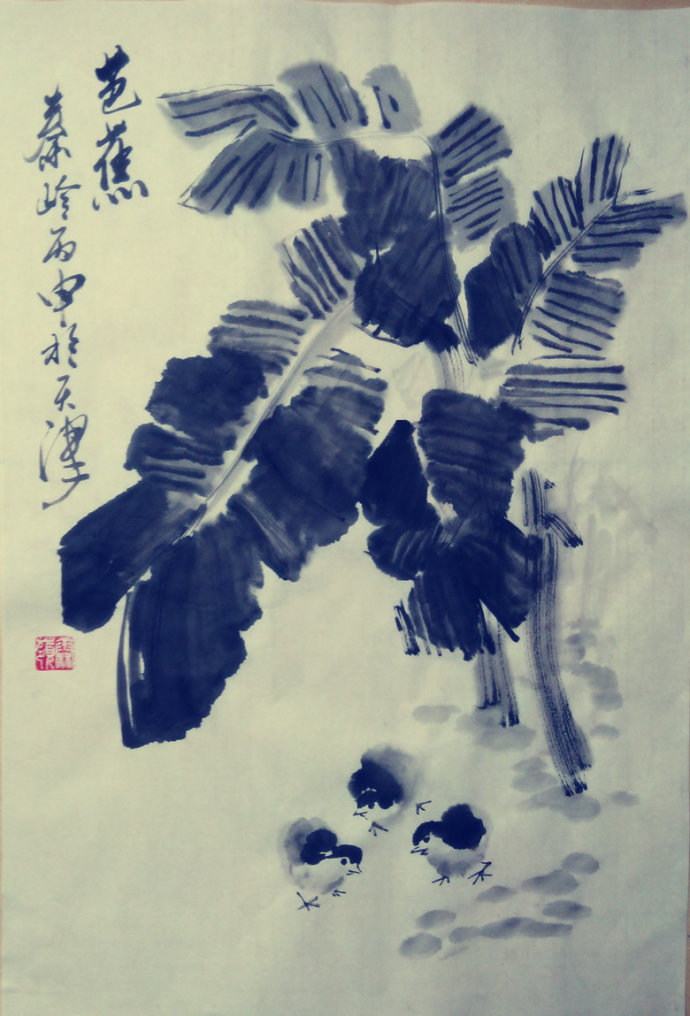 芭蕉
秦岭丙申於天津